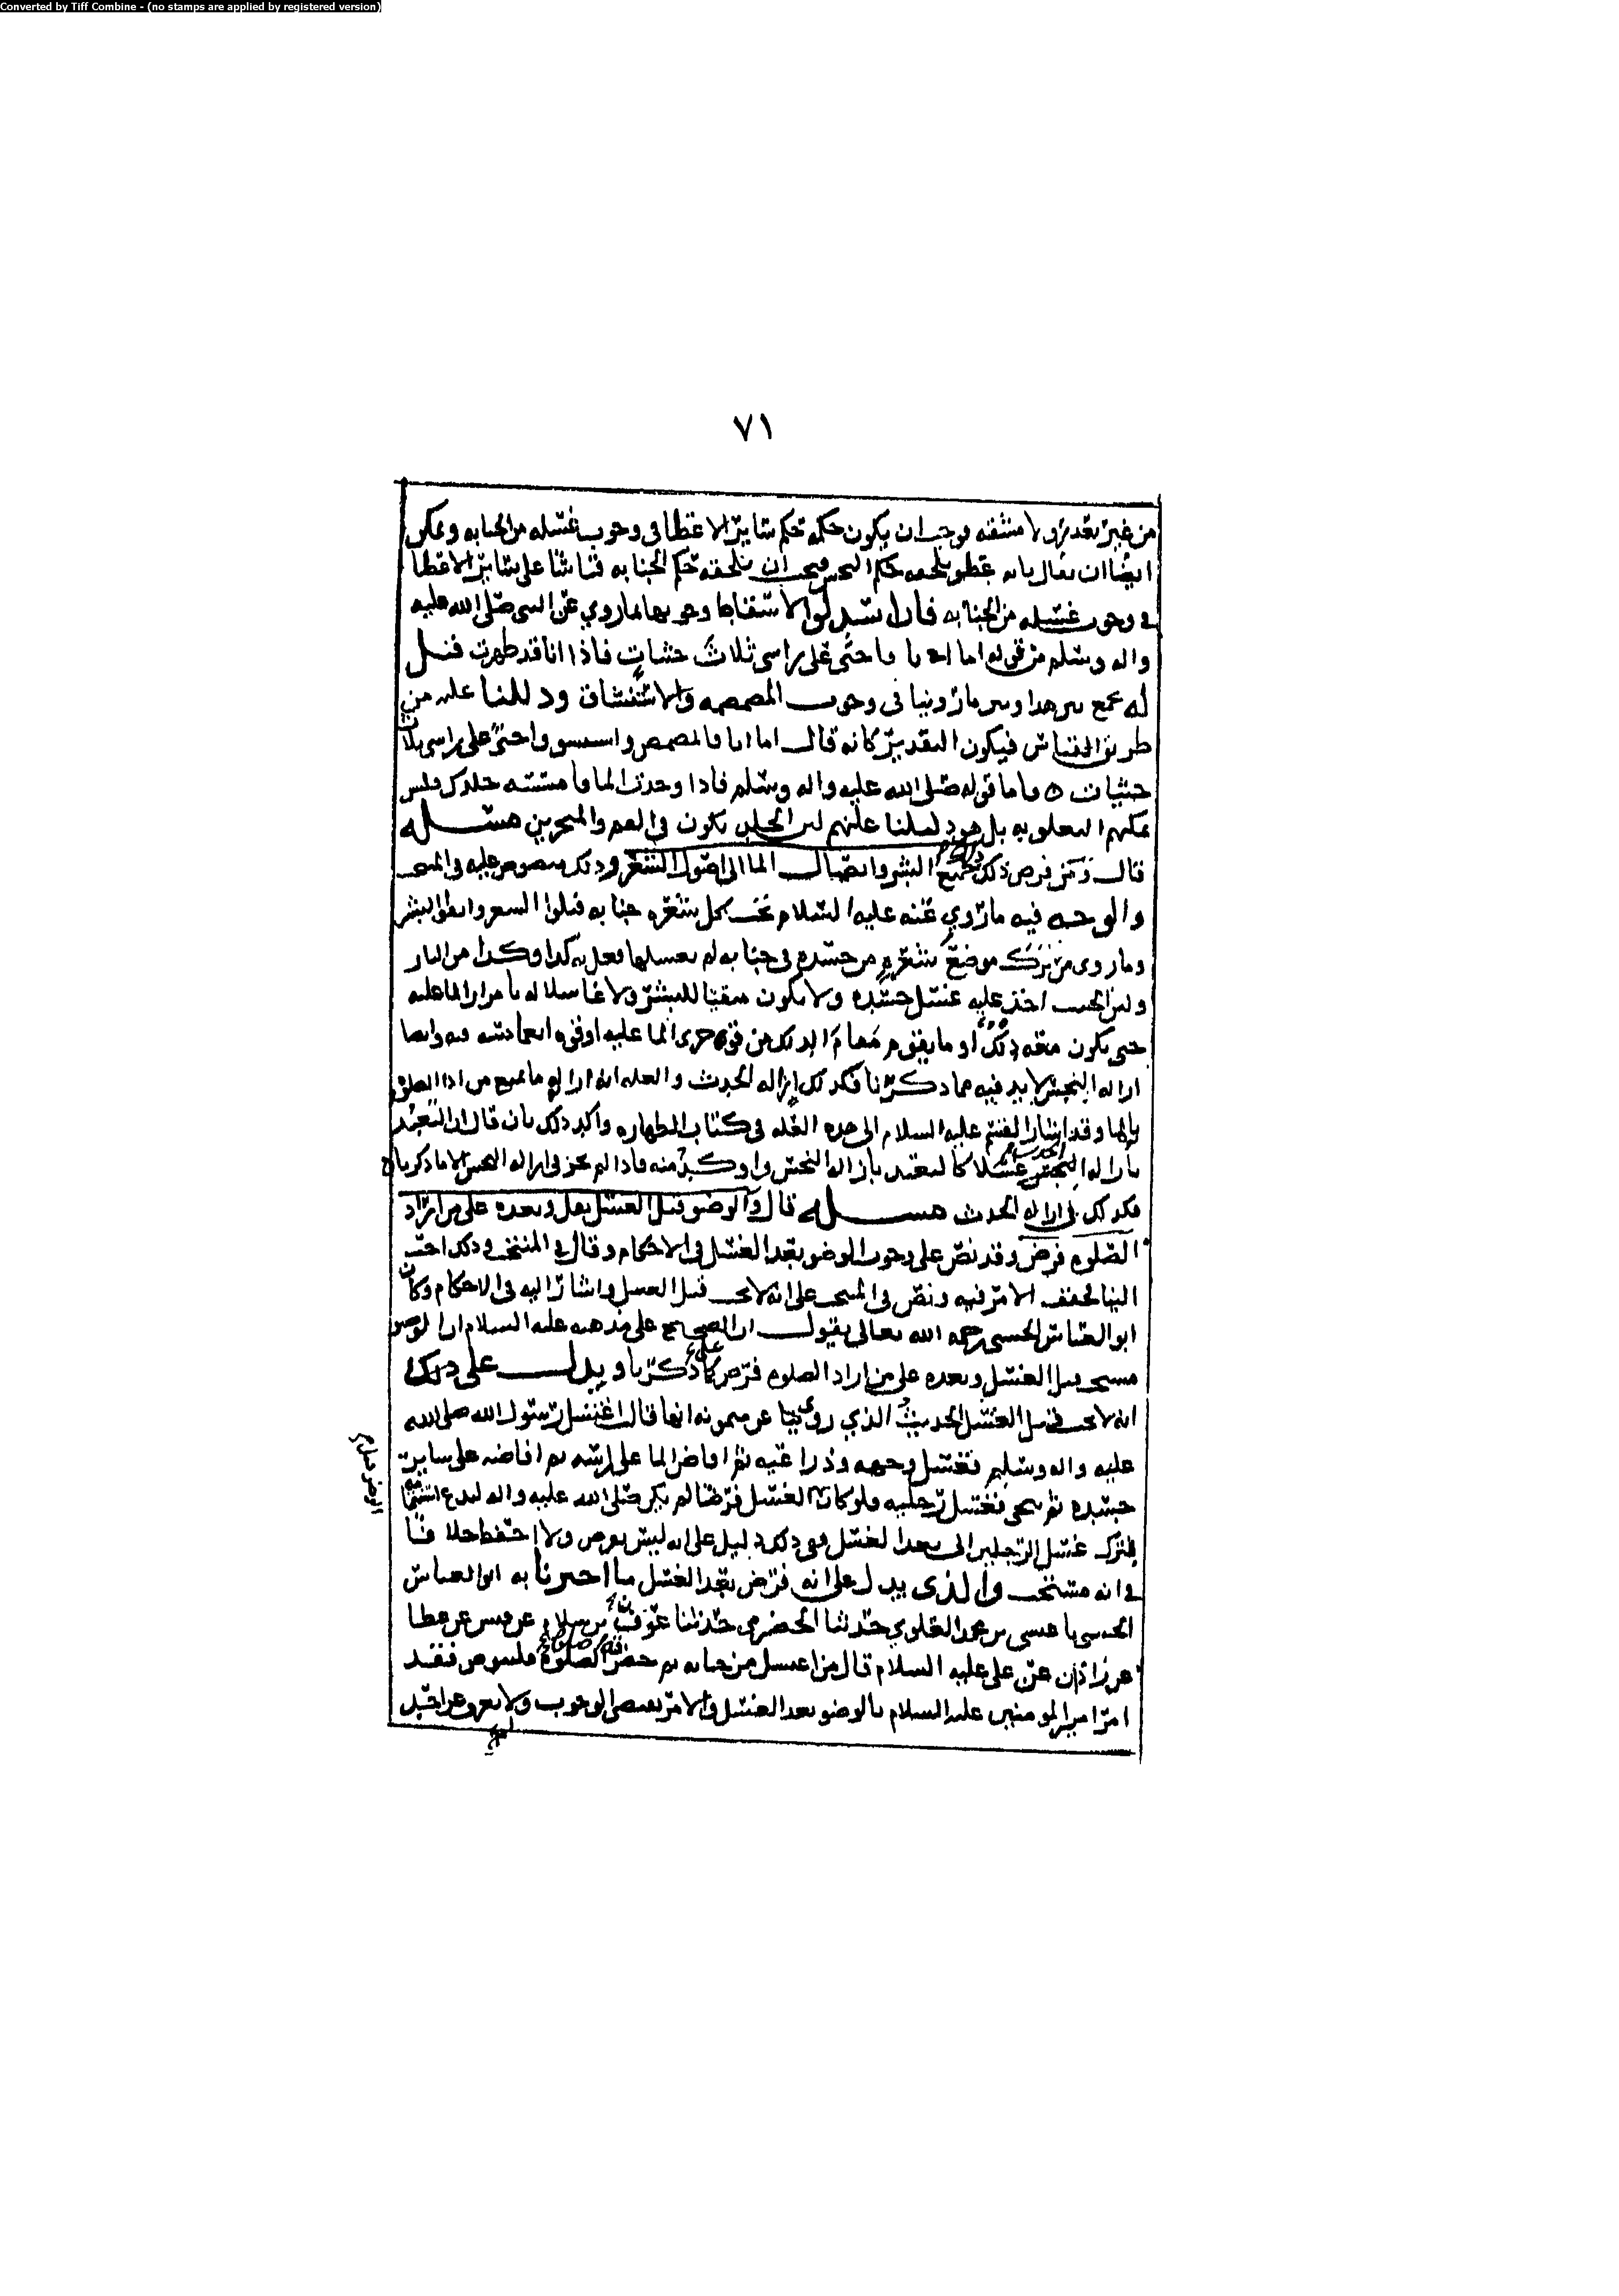 Converted by Tiff Combine - (no stamps are applied by registered version)
٧١
من غير تعذر ولا مشقه فوجب ان يكون حكمه حكم سائر الاعضا في وجوب غسله من الجنابه ويمكن
ايضا ان يقال بانه عضو يلحقه حكم النجس فيجب ان يلحقه حكم الجنابه قياسا على سائر الاعضا
في وجوب غسله من الجنابه فان استدلوا لاسقاط وجوبها بما روي عن النبي صلى الله عليه
واله وسلم من قوله اما انا فاحثي على راسي ثلاث حثيات فاذا انا قد طهرت قيل
له نجمع بين هذا وبين ما روينا في وجوب المضمضه والاستنشاق ودللنا عليه من
طريق القياس فيكون التقدير كانه قال اما انا فاتمضمض واستنشق واحثي على راسي ثلاث
حثيات ه واما قوله صلى الله عليه واله وسلم فاذا وجدت الما فامسسه جلدك فليس
يمكنهم التعلق به بل هو دليلنا عليهم لان الجلد يكون في الفم والمنخرين مسئله
قال وتمز فرض ذلك جميع البشر وايصال الما الى اصول الشعر وذلك منصوص عليه في المنتخب
والوجه فيه ما روي عنه عليه السلام تحت كل شعره جنابه فبلوا الشعر وانقوا البشر
وما روى من ترك موضع شعره من جسده في جنابه لم يغسلها فعل به كذا وكذا من النار
ولان الجنب اخذ عليه غسل جسده ولا يكون منقيا للبشر ولا غاسلا له بامرار الما عليه
حتى يكون معه دلك او ما يقوم مقام الدلك من قوه جرى الما عليه او قوه انغماسه فيه وايضا
ازاله النجس لا بد فيه مما ذكرنا فكذلك ازاله الحدث والعله انه ازاله ما يمنع من ادا الصلوه
بالما وقد اشار القسم عليه السلام الى هذه العله في كتاب الطهاره واكد ذلك بان قال ان التعبد
بازاله الحدث غسلا كالتعبد بازاله النجس واوكد منه فاذا لم يجز في ازاله النجس الا ما ذكرناه
فكذلك في ازاله الحدث مسئله قال والوضو قبل الغسل نفل وبعده على من اراد
الصلوه فرض وقد نص على وجوب الوضو بعد الغسل في الاحكام وقال في المنتخب وذلك احب
الينا لخفف الامر فيه ونص في المنتخب على انه لا يجب قبل الغسل واشار اليه في الاحكام وكان
ابو العباس الحسني رحمه الله تعالى يقول ان الصحيح على مذهبه عليه السلام ان الوضو
مستحب قبل الغسل وبعده على من اراد الصلوه فرض على ما ذكرنا ويدل على ذلك
انه لا يجب قبل الغسل الحديث الذي روي لنا عن ميمونه انها قالت اغتسل رسول الله صلى الله
عليه واله وسلم فغسل وجهه وذراعيه ثم افاض الما على راسه ثم افاضه على ساير
جسده ثم تنحى فغسل رجليه فلو كان الغسل فرضا لم يكن صلى الله عليه واله ليدع استتمامه
بترك غسل الرجلين الى بعد الغسل ففي ذلك دليل على انه ليس بفرض ولا احفظ خلافا
في انه مستحب والذي يدل على انه فرض بعد الغسل ما اخبرنا به ابو العباس
الحسني نا عيسى بن محمد العلوي حدثنا الحضرمي حدثنا عون بن سلام عن قيس عن عطا
عن زاذان عن علي عليه السلام قال من اغتسل من جنابه ثم حضر الصلوه فليتوض فقد
امر امير المومنين عليه السلام بالوضو بعد الغسل والامر يقتضي الوجوب ولا يعرف عن احد